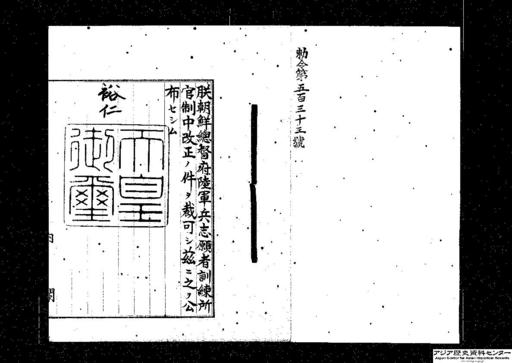 勅令第五百三十三號
朕朝鮮總督府陸軍兵志願者訓練所
官制中改正ノ件ヲ裁可シ茲ニ之ヲ公
布セシム
裕仁
天皇
御璽
内
閣
アジア歴史資料センター
Japan Center for Asian Historical Records